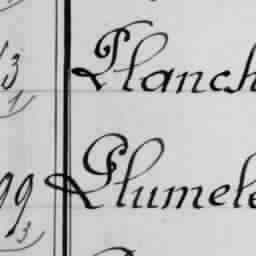 13 Planch
1
99 Plumele
3